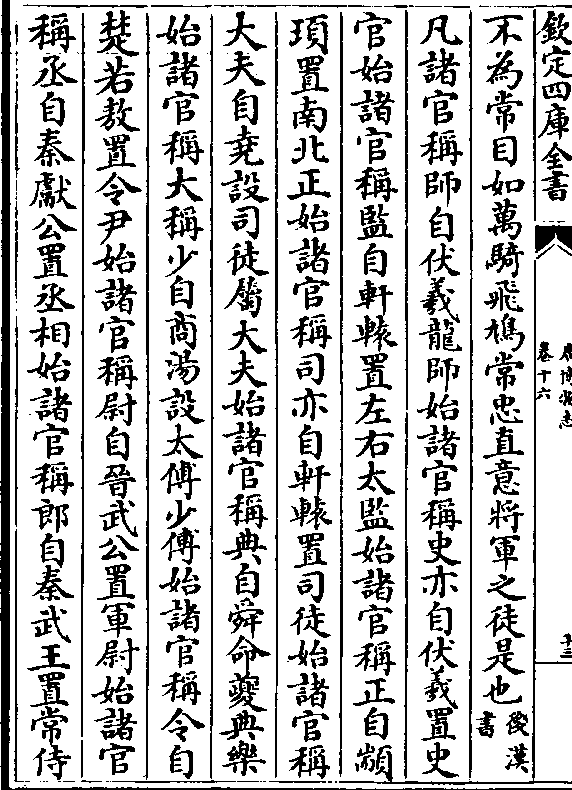 欽定四庫全書
卷十六
不為常目如萬騎飛鳩常忠直意將軍之徒是也後漢書
凡諸官稱師自伏羲龍師始諸官稱史亦自伏羲置史
官始諸官稱監自軒轅置左右太監始諸官稱正自顓
頊置南北正始諸官稱司亦自軒轅置司徒始諸官稱
大夫自堯設司徒屬大夫始諸官稱典自舜命夔典樂
始諸官稱大稱少自商湯設太傅少傅始諸官稱令自
楚若敖置令尹始諸官稱尉自晉武公置軍尉始諸官
稱丞自秦獻公置丞相始諸官稱郎自秦武王置常侍